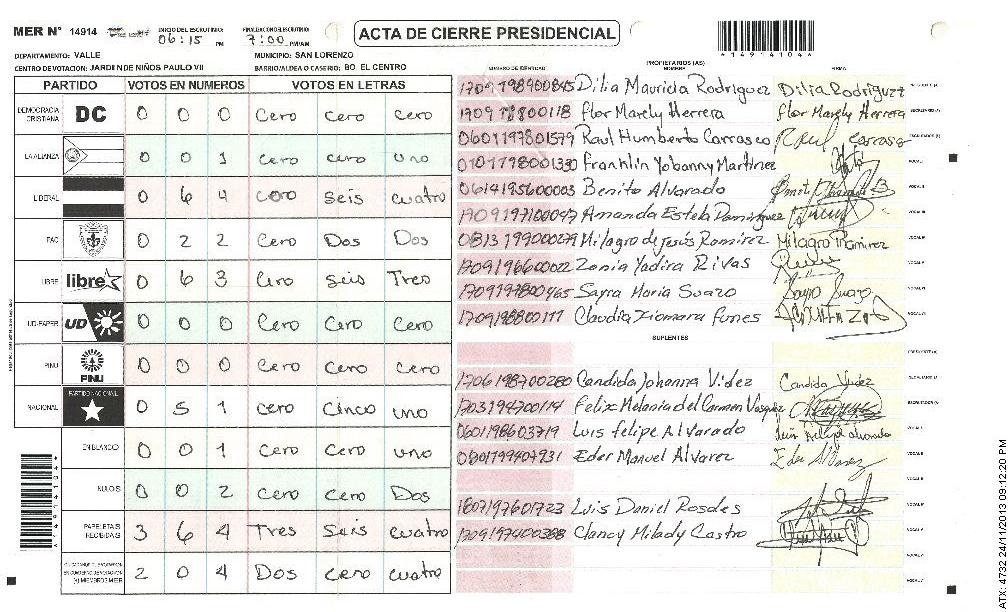 MER N° 14914
INICIO DEL ESCRUTINIO: 06:15 PM
FINALIZACION DEL ESCRUTINIO: 7:00 PM/AM
ACTA DE CIERRE PRESIDENCIAL
*14914104*
DEPARTAMENTO: VALLE
MUNICIPIO: SAN LORENZO
CENTRO DE VOTACION: JARDI NDE NIÑOS PAULO VII
BARRIO/ALDEA O CASERIO: BO. EL CENTRO
PARTIDO VOTOS EN NUMEROS VOTOS EN LETRAS
DEMOCRACIA CRISTIANA DC 0 0 0 Cero cero cero
LA ALIANZA 0 0 1 cero cero uno
LIBERAL 0 6 4 cero seis cuatro
PAC 0 2 2 Cero Dos Dos
LIBRE libre 0 6 3 Cero seis Tres
UD-FAPER UD 0 0 0 Cero Cero Cero
PINU PINU 0 0 0 Cero Cero Cero
NACIONAL PARTIDO NACIONAL 0 5 1 cero Cinco uno
EN BLANCO 0 0 1 Cero Cero uno
NULOS 0 0 2 Cero Cero Dos
PAPELETAS RECIBIDAS 3 6 4 Tres Seis cuatro
2 0 4 Dos cero cuatro
PROPIETARIOS (AS)
NUMERO DE IDENTIDAD NOMBRE FIRMA
Dilia Mauricia Rodriguez Dilia Rodriguez
Flor Marely Herrera Flor Marely Herrera
0601197801579 Raul Humberto Carrasco
0101198001330 Franklin Yobanny Martinez
0614195600003 Benito Alvarado
1709197100047 Amanda Estela Dominguez
0813199000279 Milagro de Jesús Ramirez Milagro Ramirez
1709196600022 Zonia Yadira Rivas
1709197800465 Sayra Maria Suazo
1709198800111 Claudia Xiomara Funes
SUPLENTES
1706198700280 Candida Johanna Videz Candida Videz
1703194700114 Felix Melania del Carmen Vasquez
0601198603719 Luis felipe Alvarado
0801199407931 Eder Manuel Alvarez Eder Alvarez
1807197601723 Luis Daniel Rosales
1709197400388 Clancy Milady Castro
ATX: 4732 24/11/2013 09:12:20 PM